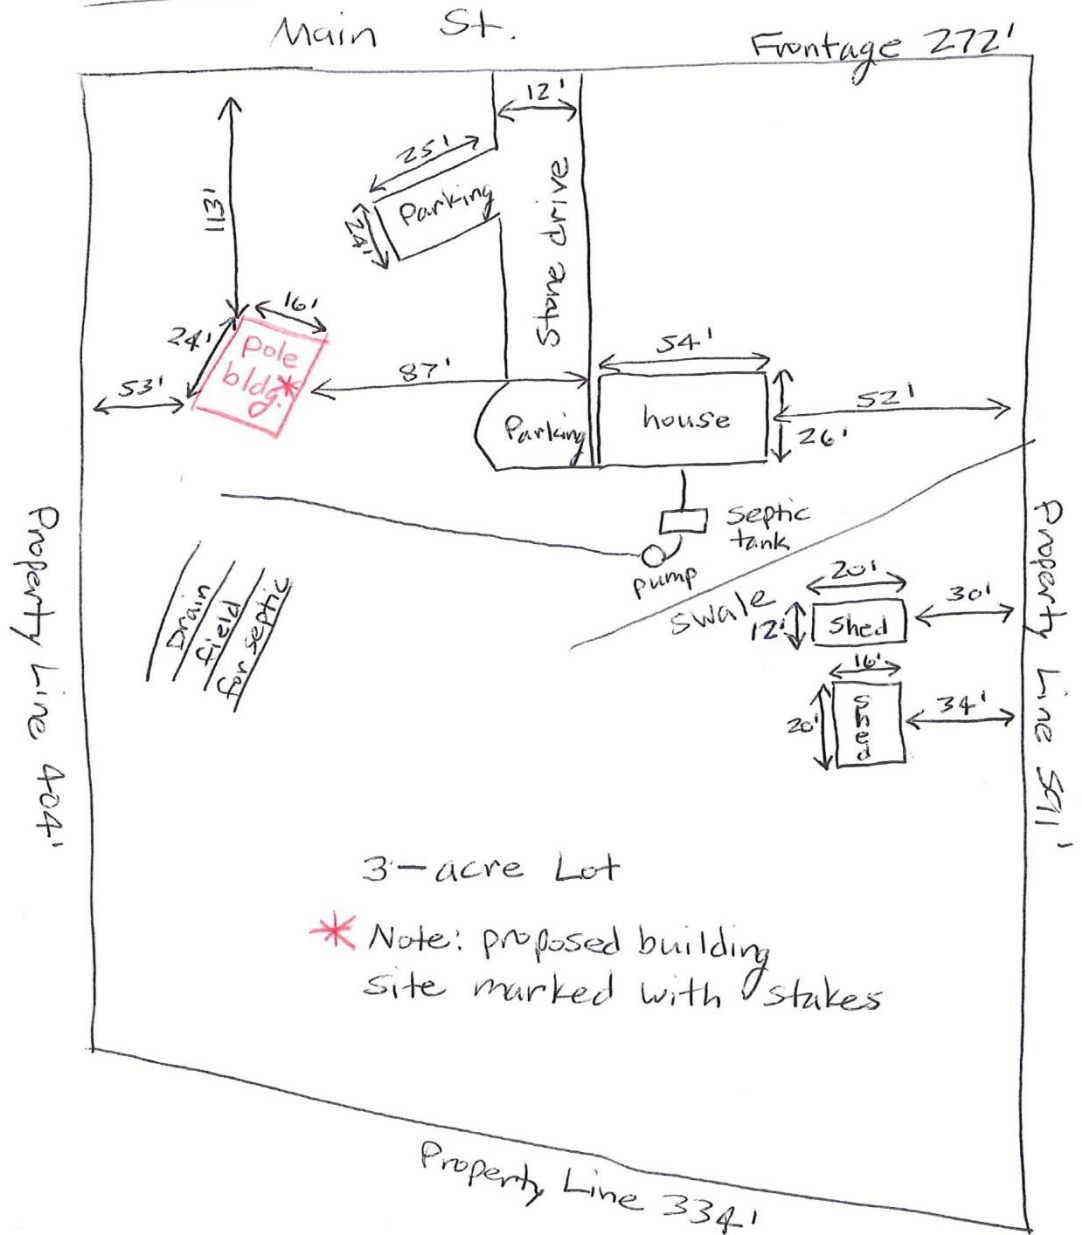 Main St.
Frontage 272'
12'
25'
Parking
24'
Stone drive
113'
16'
24'
Pole
bldg.*
53'
87'
54'
Parking
house
52'
26'
septic
tank
pump
swale
20'
12'
Shed
30'
16'
20'
Shed
34'
Drain
field
for septic
Property Line 404'
Property Line 591'
3-acre Lot
* Note: proposed building
site marked with stakes
Property Line 334'